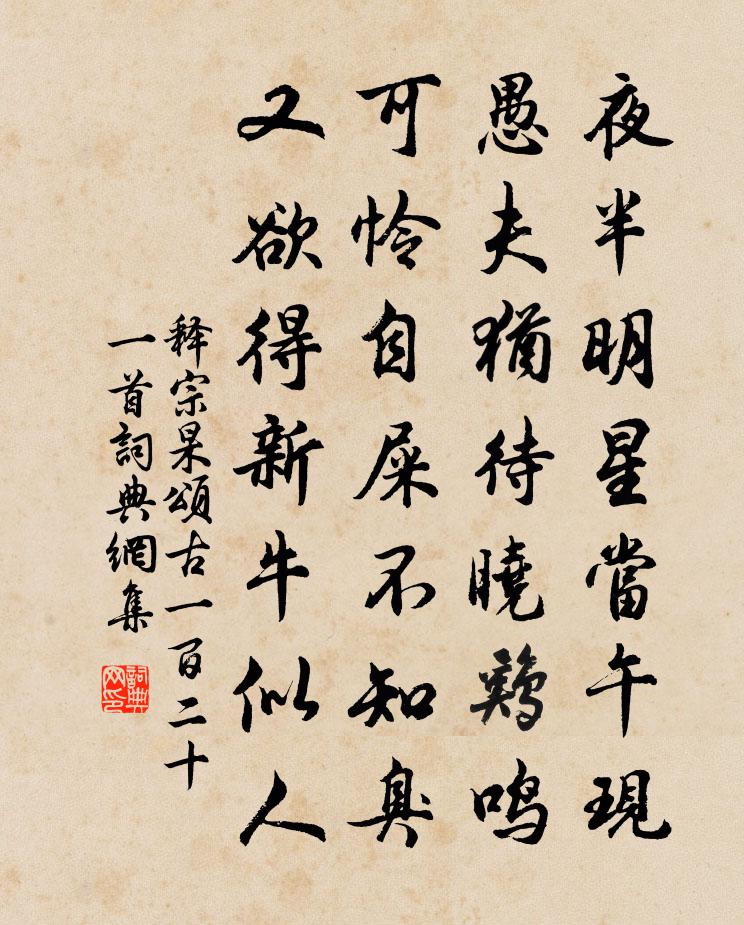 夜半明星當午現
愚夫猶待曉鷄鳴
可怜自屎不知臭
又欲得新牛似人
释宗杲頌古一百二十
一首詞典網集
詞典网印